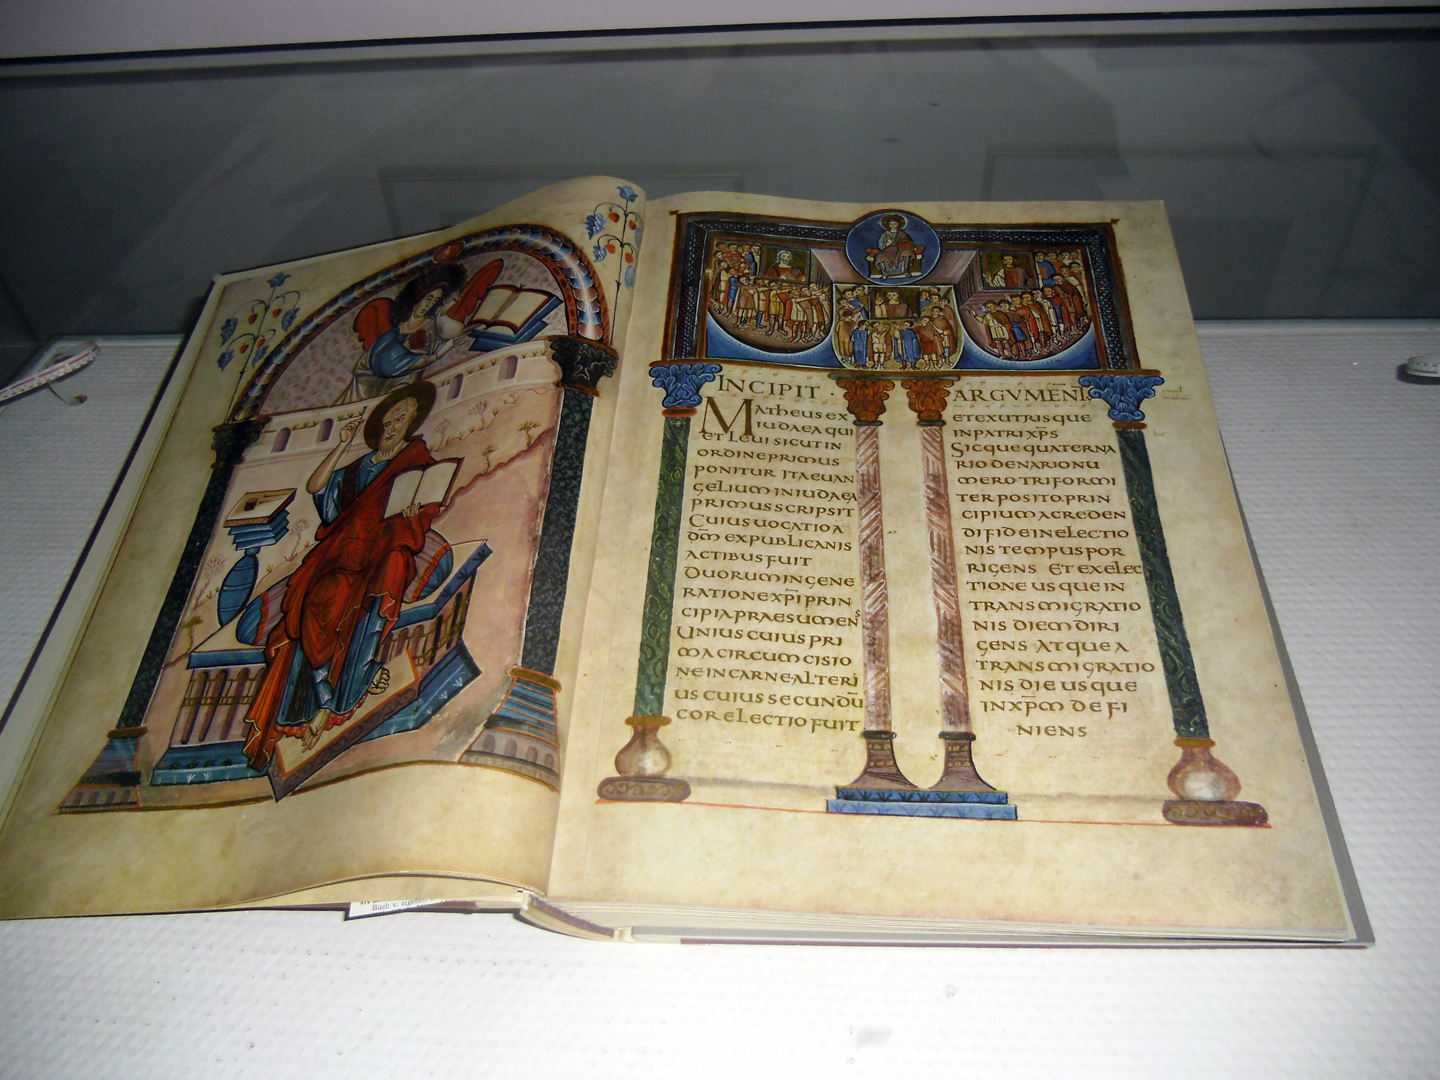 INCIPIT ·
MATHEUS EX
IUDAEA QUI
ET LEUI SICUT IN
ORDINE PRIMUS
PONITUR ITA EUAN
GELIUM IN IUDAEA
PRIMUS SCRIPSIT
CUIUS UOCATIO A
D̄M EX PUBLICANIS
ACTIBUS FUIT
DUORUM IN GENE
RATIONE XP̄I PRIN
CIPIA PRAESUMENS
UNIUS CUIUS PRI
MA CIRCUMCISIO
NE IN CARNE ALTERI
US CUIUS SECUNDŪ
COR ELECTIO FUIT
ARGVMEN̄T
ET EX UTRISQUE
IN PATRI XP̄S
SICQUE QUATERNA
RIO DENARIO NU
MERO TRIFORMI
TER POSITO. PRIN
CIPIUM A CREDEN
DI FIDE IN ELECTIO
NIS TEMPUS POR
RIGENS ET EX ELEC
TIONE USQUE IN
TRANSMIGRATIO
NIS DIEM DIRI
GENS ATQUE A
TRANSMIGRATIO
NIS DIE USQUE
IN XP̄M DEFI
NIENS
Buch v.